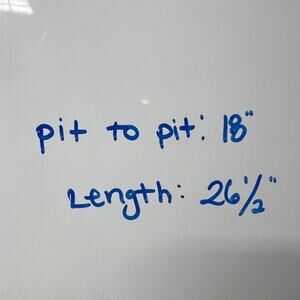 pit to pit: 18"
Length: 26 1/2"